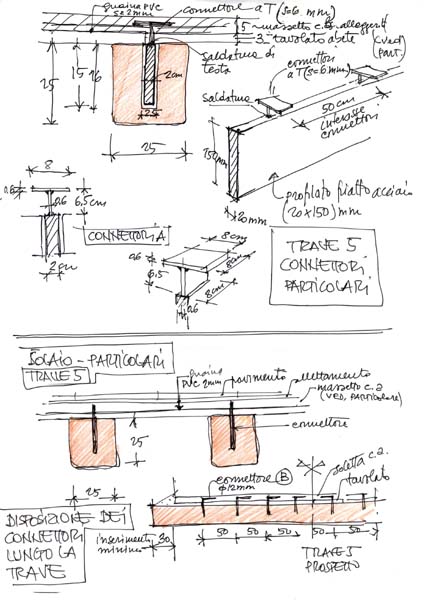 guaina PVC
s=2mm
connettore a T (s=6 mm)
5 massetto c.a. allegger.
3 tavolato abete
(ved.
part.
saldatura di
testa
connettori
a T (s=6mm)
saldatura
50cm
interasse
connettori
25
15
16
2cm
2.5
25
150mm
20mm
profilato piatto acciaio
(20x150)mm
8
0.6
0.6
6,5cm
2cm
CONNETTORI A
8cm
8cm
0.6
6,5
8cm
0.6
TRAVE 5
CONNETTORI
PARTICOLARI
SOLAIO - PARTICOLARI
TRAVE 5
guaina
PVC 2mm
pavimento
allettamento
massetto c.a.
(VED. PARTICOLARE)
connettore
25
25
connettore B
Φ12mm
soletta c.a.
tavolato
DISPOSIZIONE DEI
CONNETTORI
LUNGO LA
TRAVE
inserimento
minimo
30
50
50
50
50
50
TRAVE 5
PROSPETTO